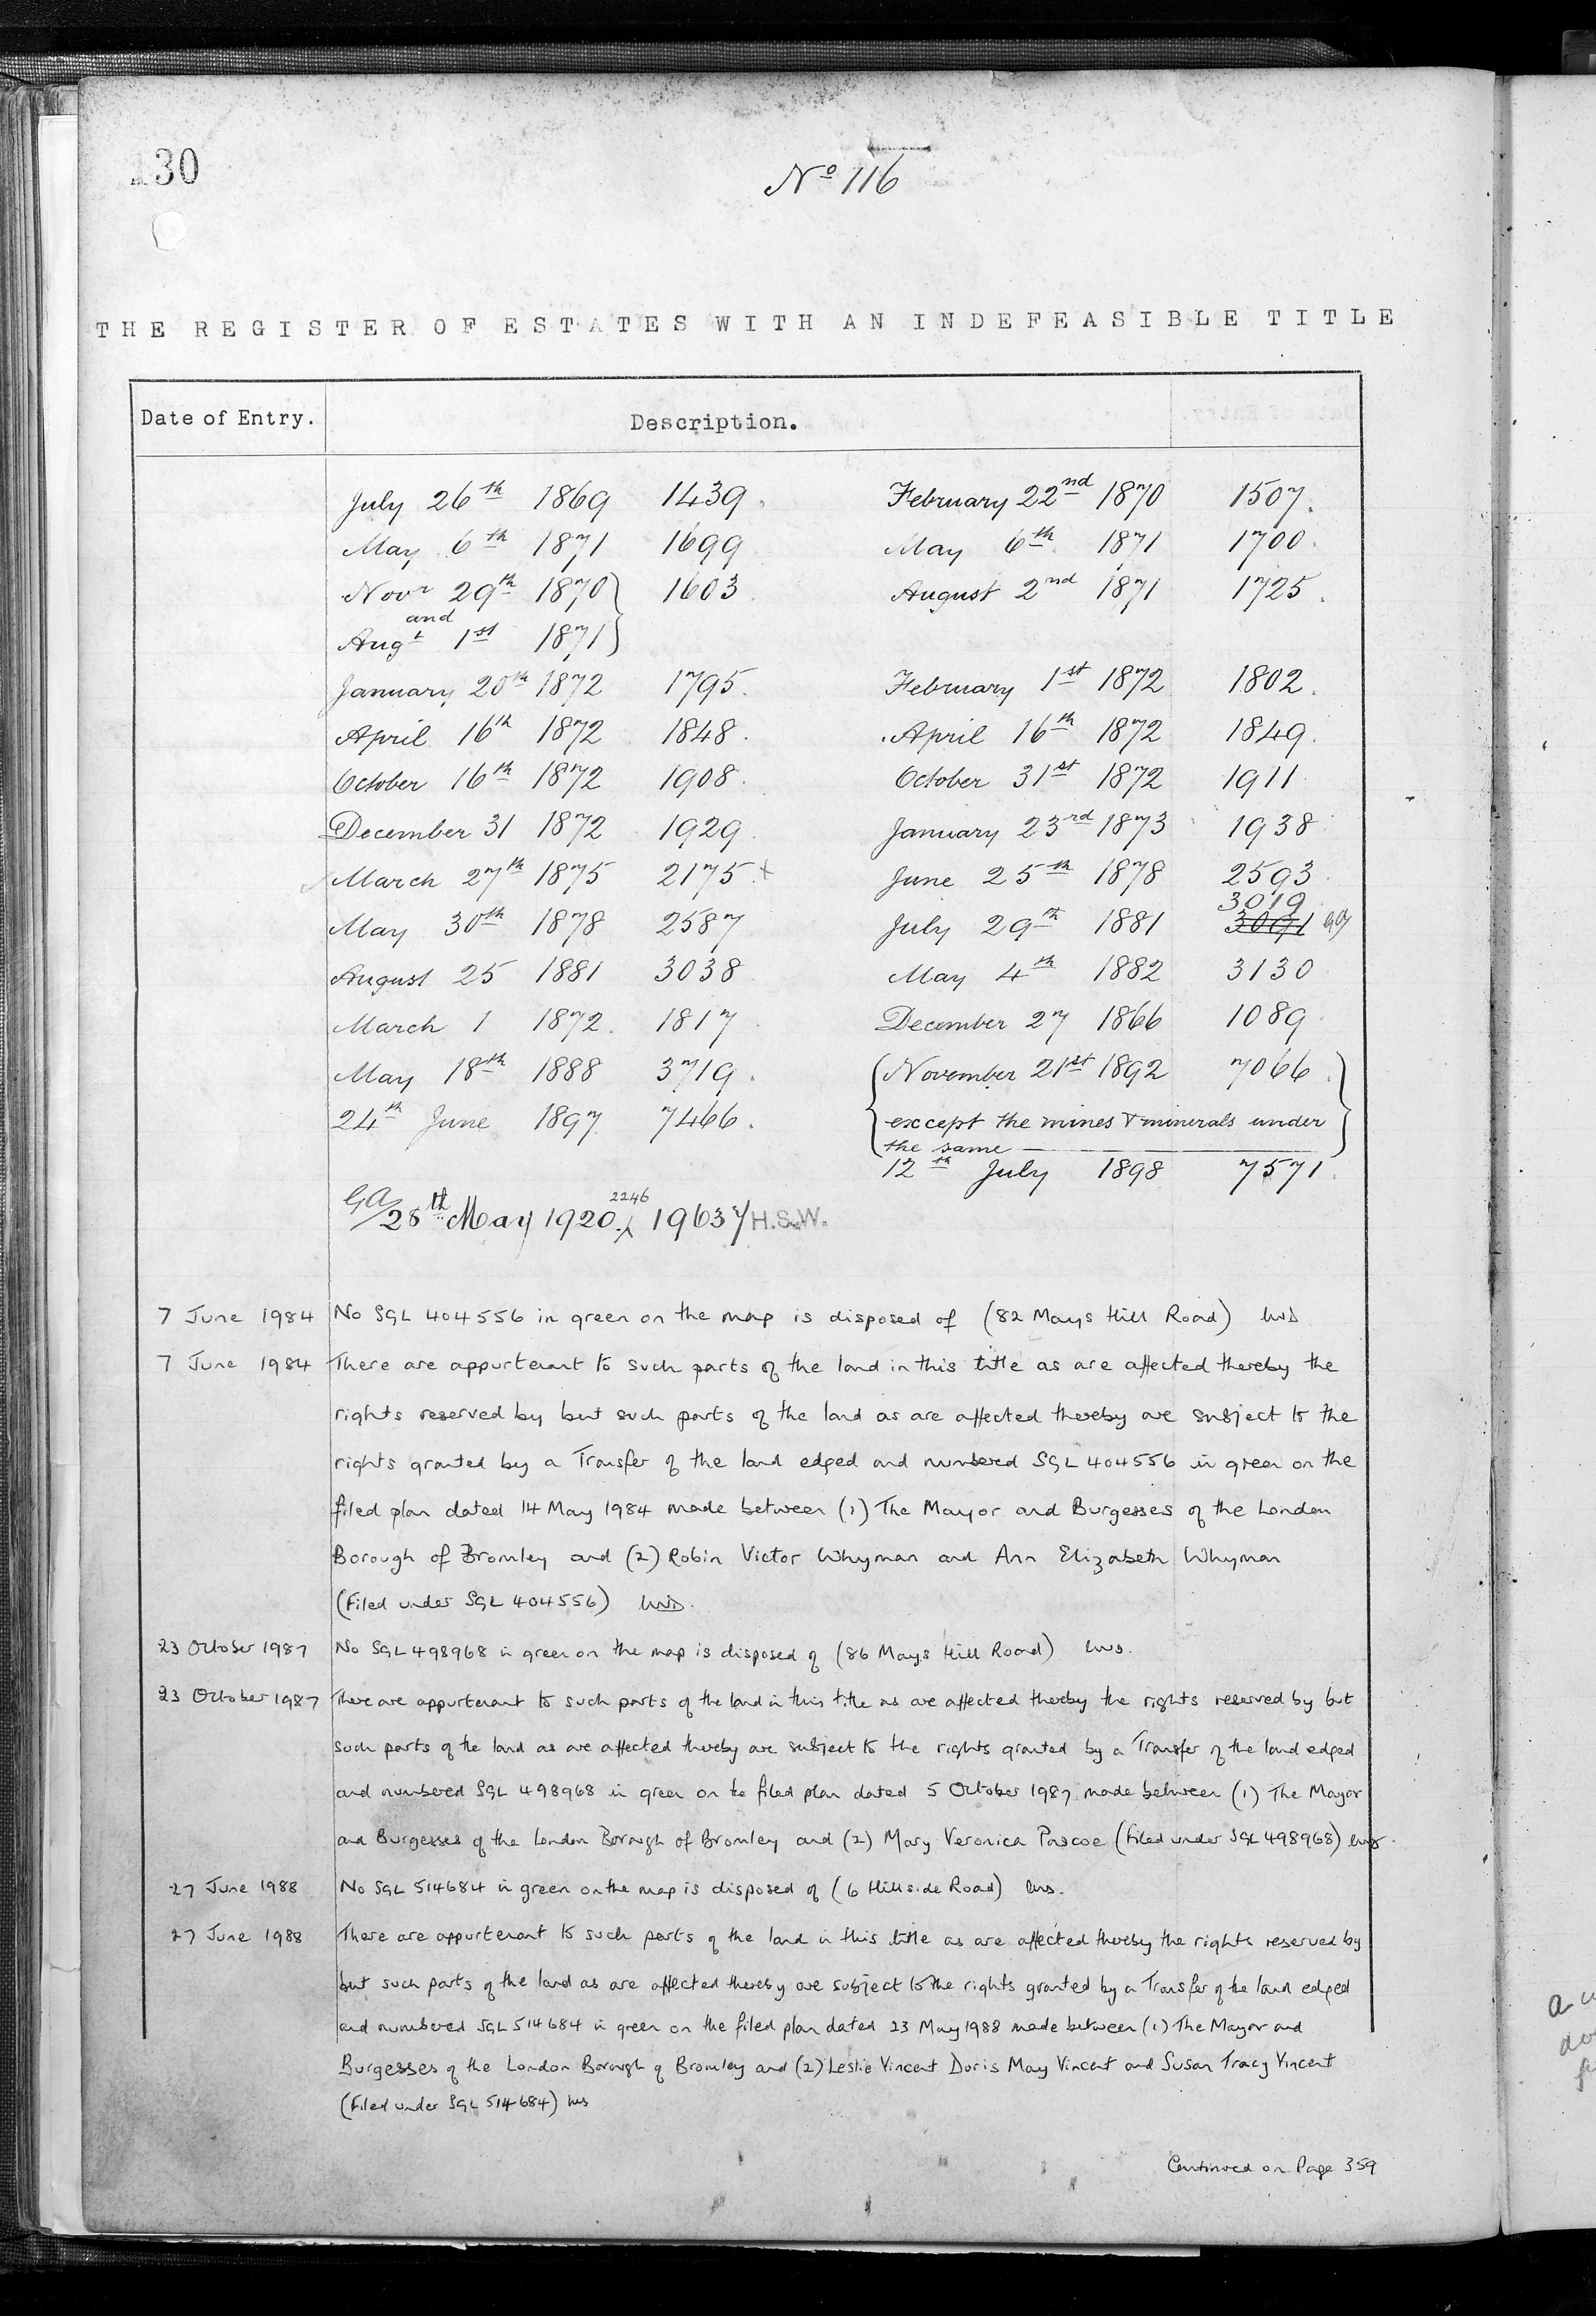 130
No 116
THE REGISTER OF ESTATES WITH AN INDEFEASIBLE TITLE
Date of Entry. Description.
July 26th 1869 1439. February 22nd 1870 1507.
May 6th 1871 1699 May 6th 1871 1700.
Novr 29th 1870 1603. August 2nd 1871 1725.
and
Augt 1st 1871
January 20th 1872 1795. February 1st 1872 1802.
April 16th 1872 1848. April 16th 1872 1849.
October 16th 1872 1908. October 31st 1872 1911
December 31 1872 1929 January 23rd 1873 1938
March 27th 1875 2175.+ June 25th 1878 2593
3019
May 30th 1878 2587 July 29th 1881 3091
August 25 1881 3038 May 4th 1882 3130
March 1 1872. 1817 December 27 1866 1089
May 18th 1888 3719. {November 21st 1892 7066.}
24th June 1897 7466. except the mines & minerals under
the same
12th July 1898 7571.
2246
GA/28th May 1920 19637 H.S.W.
7 June 1984 No SGL 404556 in green on the map is disposed of (82 Mays Hill Road)
7 June 1984 There are appurtenant to such parts of the land in this title as are affected thereby the
rights reserved by but such parts of the land as are affected thereby are subject to the
rights granted by a Transfer of the land edged and numbered SGL 404556 in green on the
filed plan dated 14 May 1984 made between (1) The Mayor and Burgesses of the London
Borough of Bromley and (2) Robin Victor Whyman and Ann Elizabeth Whyman
(Filed under SGL 404556)
23 October 1987 No SGL 498968 in green on the map is disposed of (86 Mays Hill Road)
23 October 1987 There are appurtenant to such parts of the land in this title as are affected thereby the rights reserved by but
such parts of the land as are affected thereby are subject to the rights granted by a Transfer of the land edged
and numbered SGL 498968 in green on the filed plan dated 5 October 1987 made between (1) The Mayor
and Burgesses of the London Borough of Bromley and (2) Mary Veronica Pascoe (Filed under SGL 498968)
27 June 1988 No SGL 514684 in green on the map is disposed of (6 Hillside Road)
27 June 1988 There are appurtenant to such parts of the land in this title as are affected thereby the rights reserved by
but such parts of the land as are affected thereby are subject to the rights granted by a Transfer of the land edged
and numbered SGL 514684 in green on the filed plan dated 23 May 1988 made between (1) The Mayor and
Burgesses of the London Borough of Bromley and (2) Leslie Vincent Doris May Vincent and Susan Tracy Vincent
(Filed under SGL 514684)
Continued on Page 359